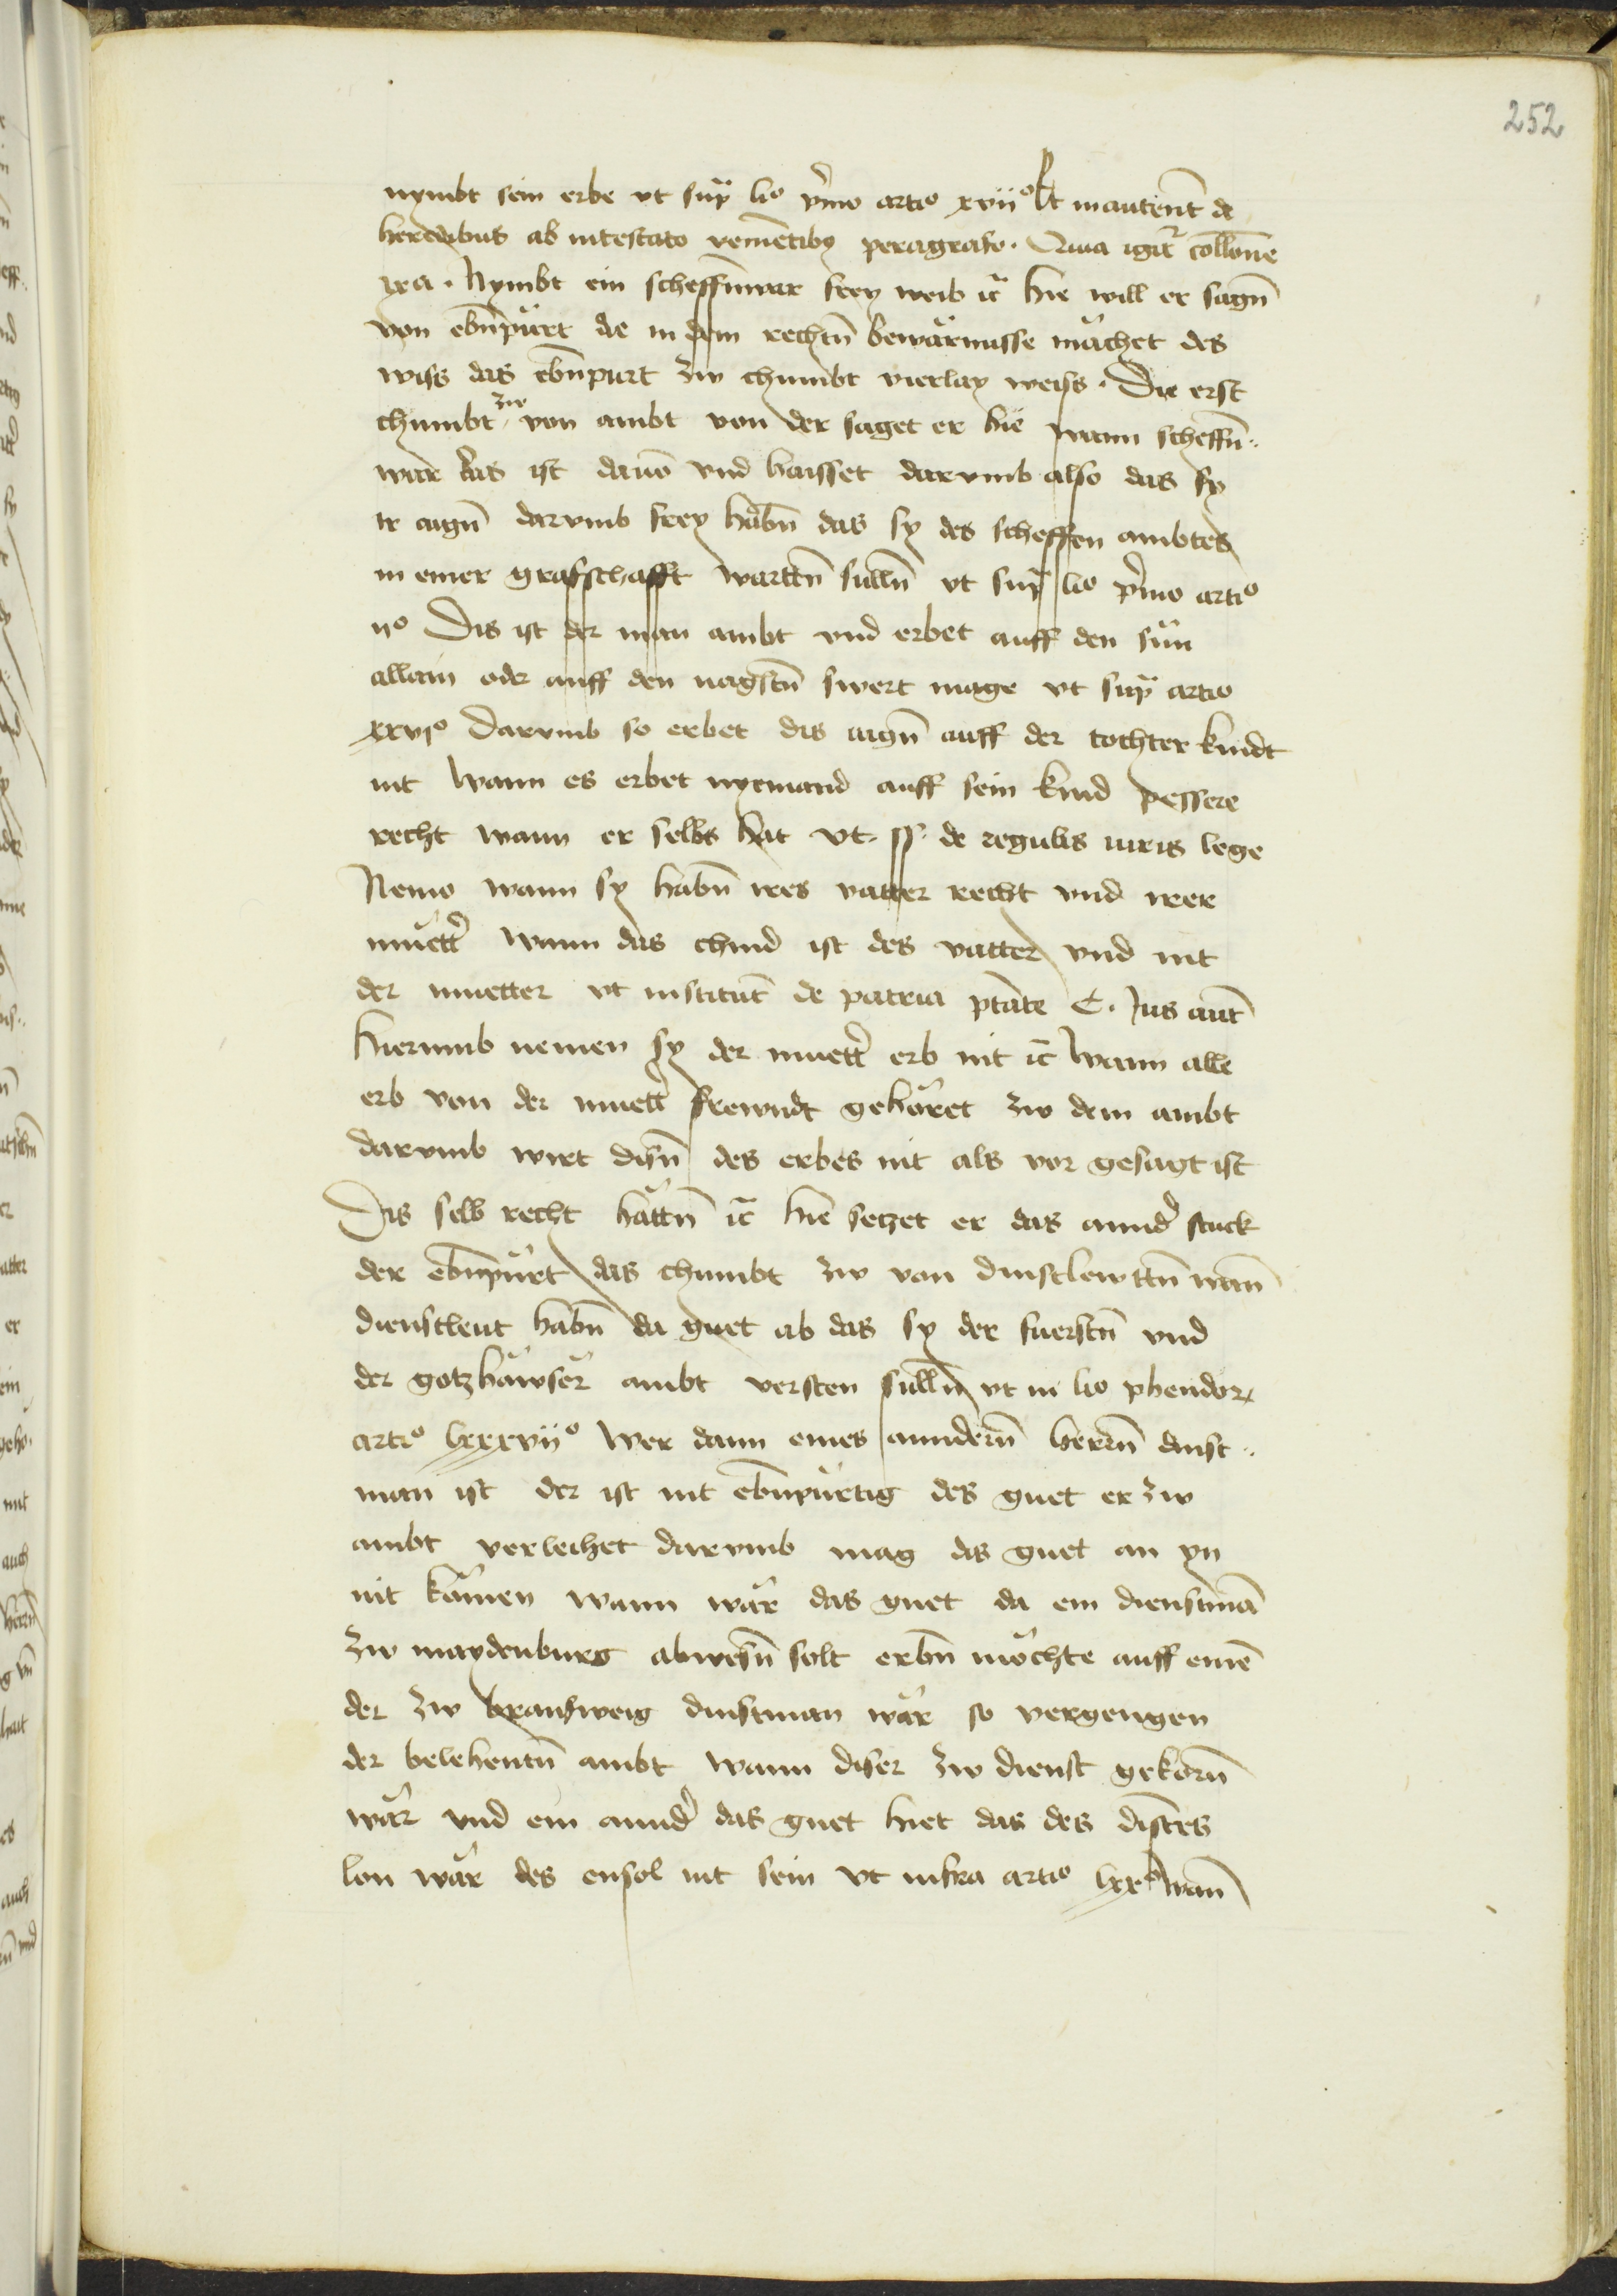 252
nymbt sein erbe vt sup̄ lio p̄mo artio xvijo Et in autent̄ de
heredibus ab intestato venientib9 peragrafo. Quia igit᷑ collone
ixa. Nymbt ein scheffinwar frey weib ic̄ hie will er sagn̄
von ebn̄pürt die in dem rechtn̄ bewärnusse mächet des
wiss das ebn̄purt zw chumbt vierlay weiss. Die erst
chumbt zw von ambt von der saget er hie wann scheffn̄
wär das ist dauō vnd haisset darvmb also das sy
ir aign̄ darvmb frey habn̄ das sy des scheffen ambtes
in einer grafschafft warttn̄ sulln̄ vt sup̄ lio p̄mo artio
ijo Dis ist der man ambt vnd erbet auff den sün
allain oder auff den nagstn̄ swert mage vt sup̄ artio
xxvjo Darvmb so erbet dis aign̄ auff der tochter kindt
nit wann es erbet nyemand auff sein kind pessere
recht wann er selbs hat vt. ff. de regulis iuris lege
Nemo wann sy habn̄ ires vatter recht vnd irer
muett̄ wann das chind ist des vatter vnd nit
der muetter vt institut̄ de patria ptāte C. Jus aut̄
hiervmb nemen sy der muett̄ erb nit ic̄ Wann alle
erb von der muett̄ frewndt gehöret zw dem ambt
darvmb wirt disn̄ des erbes nit als vor gesagt ist
Dis selb recht hättn̄ ic̄ hie setzet er das annd̄ stuck
der ebn̄pürt das chumbt zw von dinstlewttn̄ wan̄
dienstleut habn̄ da guet ab das sy der fuerstn̄ vnd
der gotzhäwser ambt versten sulln̄ vt in lio phendor
artio lxxxvijo Wer dann eines anndern̄ herrn̄ dinst
man ist der ist nit ebn̄pürtig des guet er zw
ambt verleihet darvmb mag das guet an yn
nit kömen wann wär das guet da ein dienstmā
zw maydenburg abwesn̄ solt erbn̄ möchte auff einē
der zw bransweig dinstman wär so vergengen
der belehentn̄ ambt wann diser zw dienst gekorn̄
wär vnd ein annd̄ das guet hiet das des distes
lon wär des ensol nit sein vt infra artio lxxo wan̄